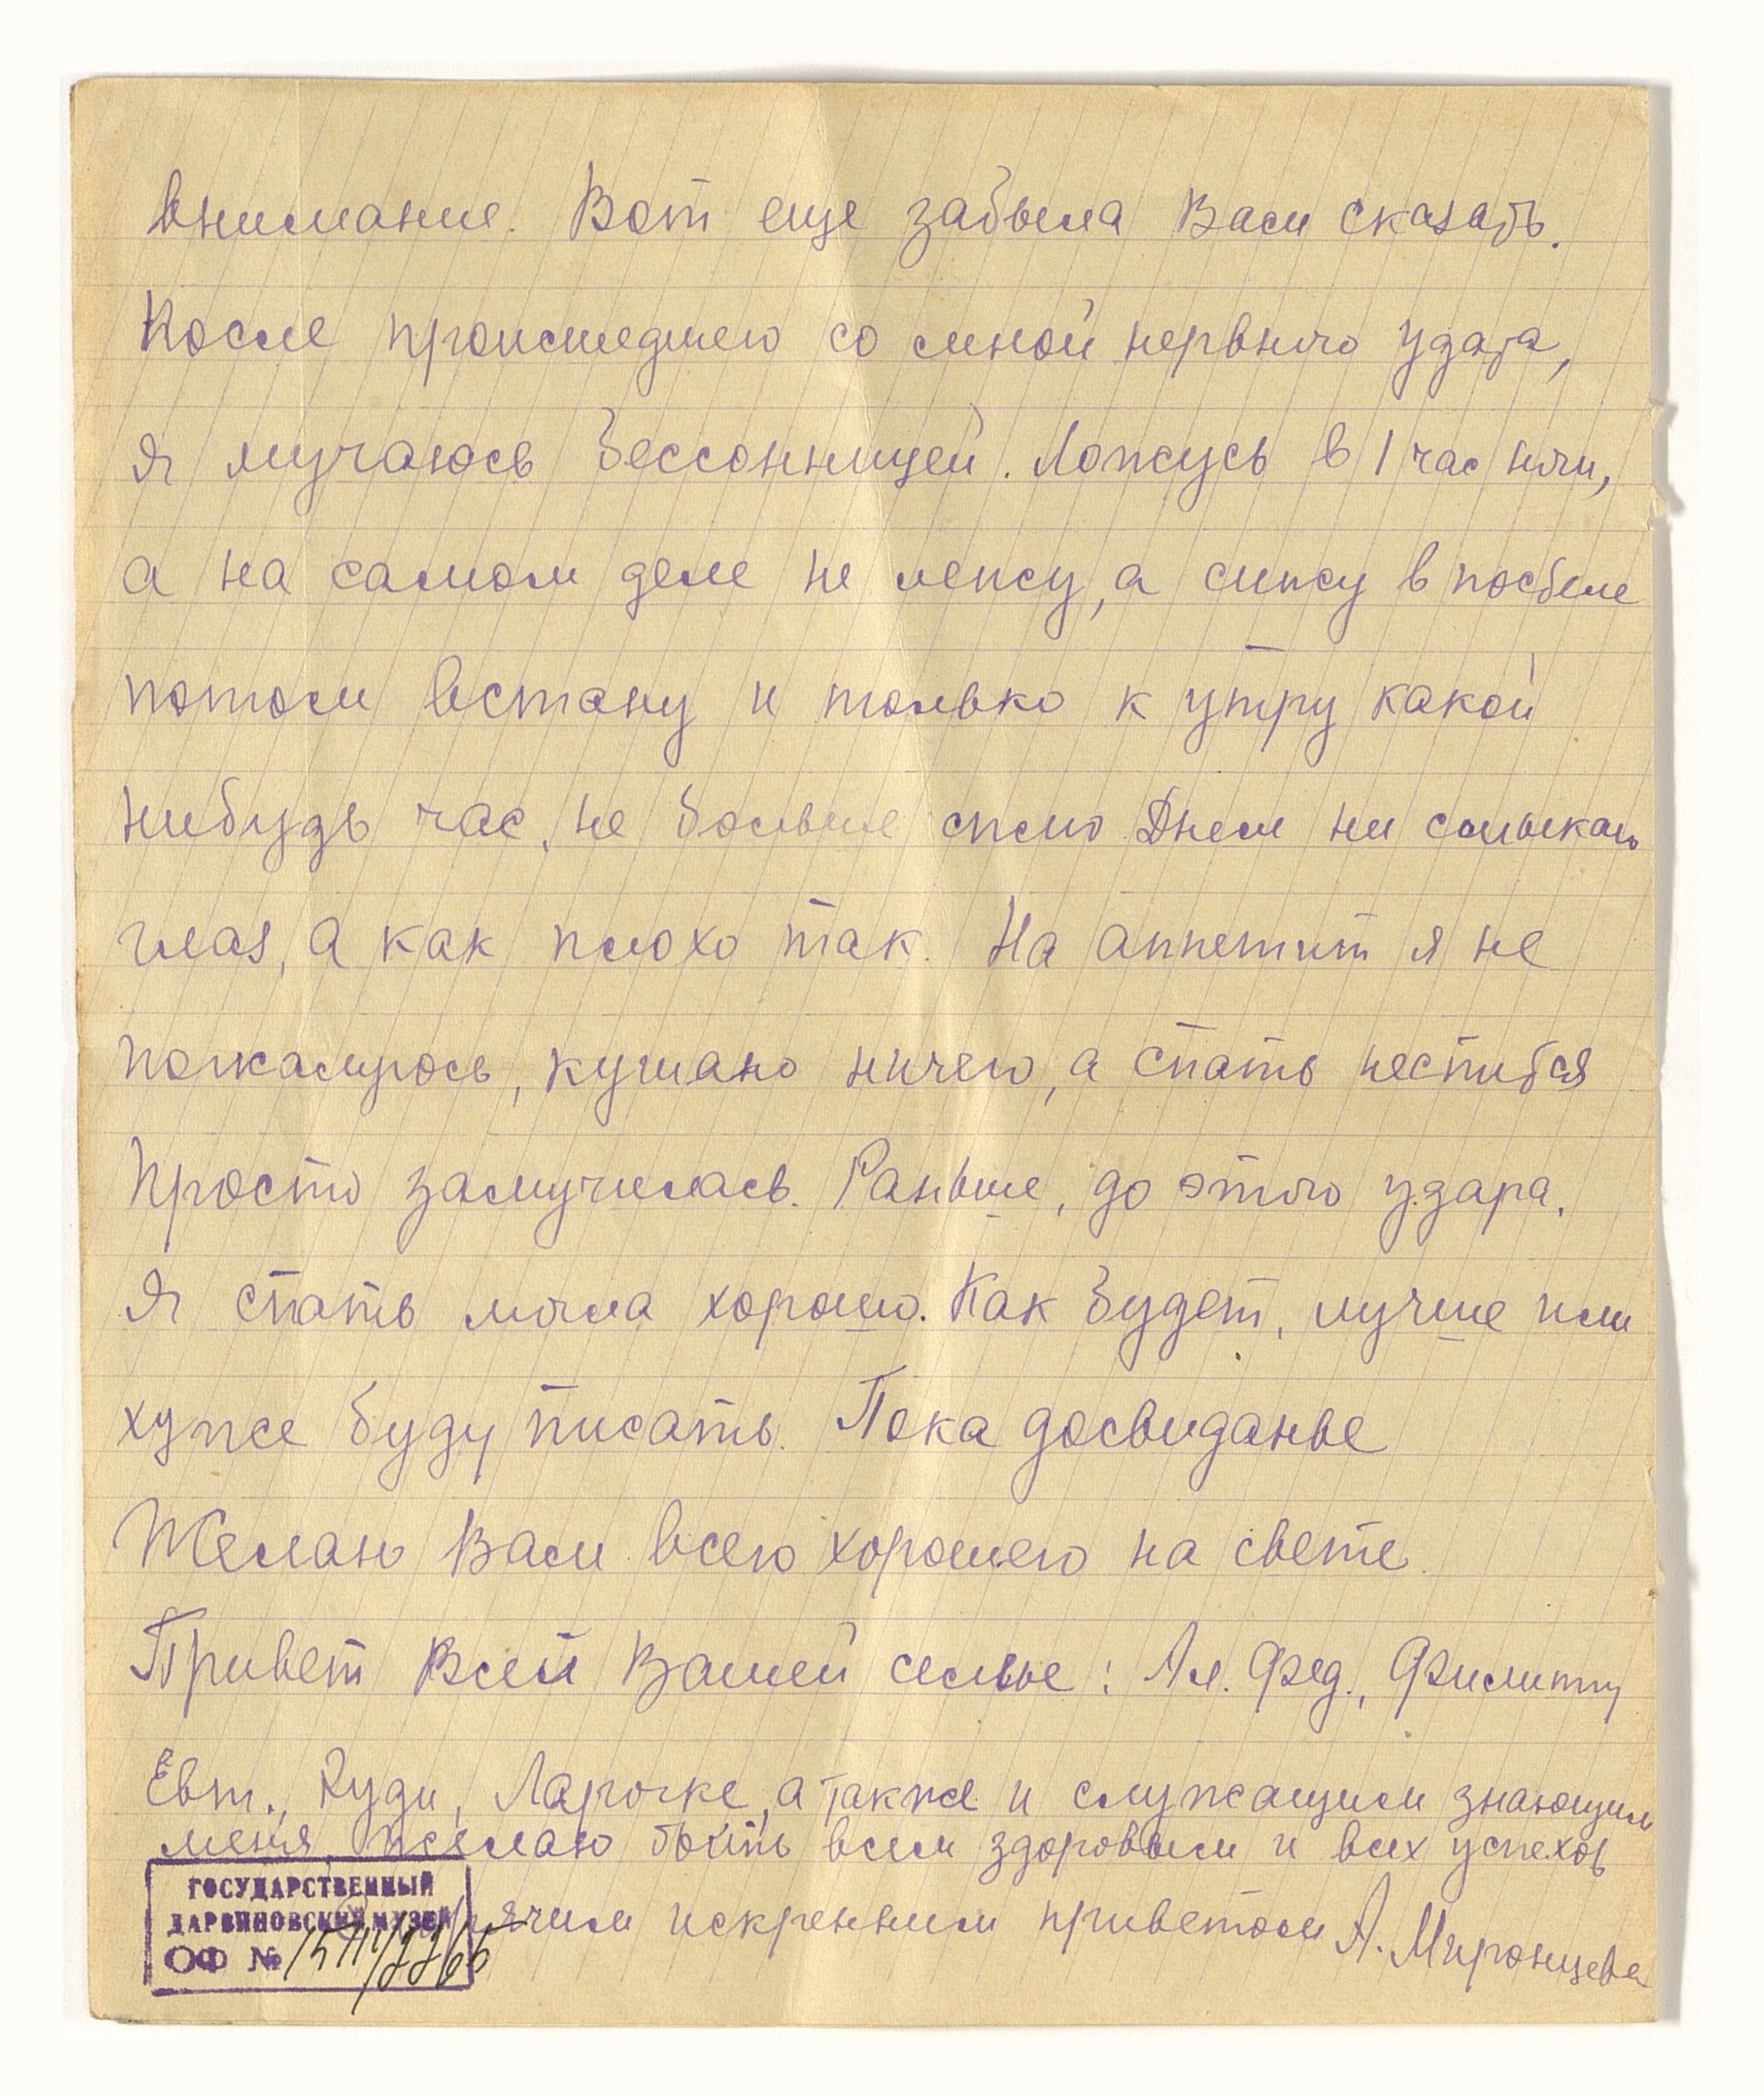 внимание. Вот еще забыла Вам сказать.
После происшедшего со мной нервного удара,
я мучаюсь бессонницей. Ложусь в 1 час ночи,
а на самом деле не лежу, а сижу в постеле
потом встану и только к утру какой
нибудь час, не больше сплю Днем ни смыкаю
глаз, а как плохо так. На аппетит я не
пожалуюсь, кушаю ничего, а спать
Просто замучилась. Раньше, до этого удара,
я спать могла хорошо. Как будет, лучше или
хуже буду писать. Пока досвиданье
Желаю Вам всего хорошего на свете
Привет Всей Вашей семье: Ал. Фед., Филиппу
Евт., Руди, Ларочке, а также и служащим знающим
меня, желаю быть всем здоровым и всех успехов
искренним приветом А. Миронцева
ГОСУДАРСТВЕННЫЙ
ДАРВИНОВСКИЙ МУЗЕЙ
ОФ №